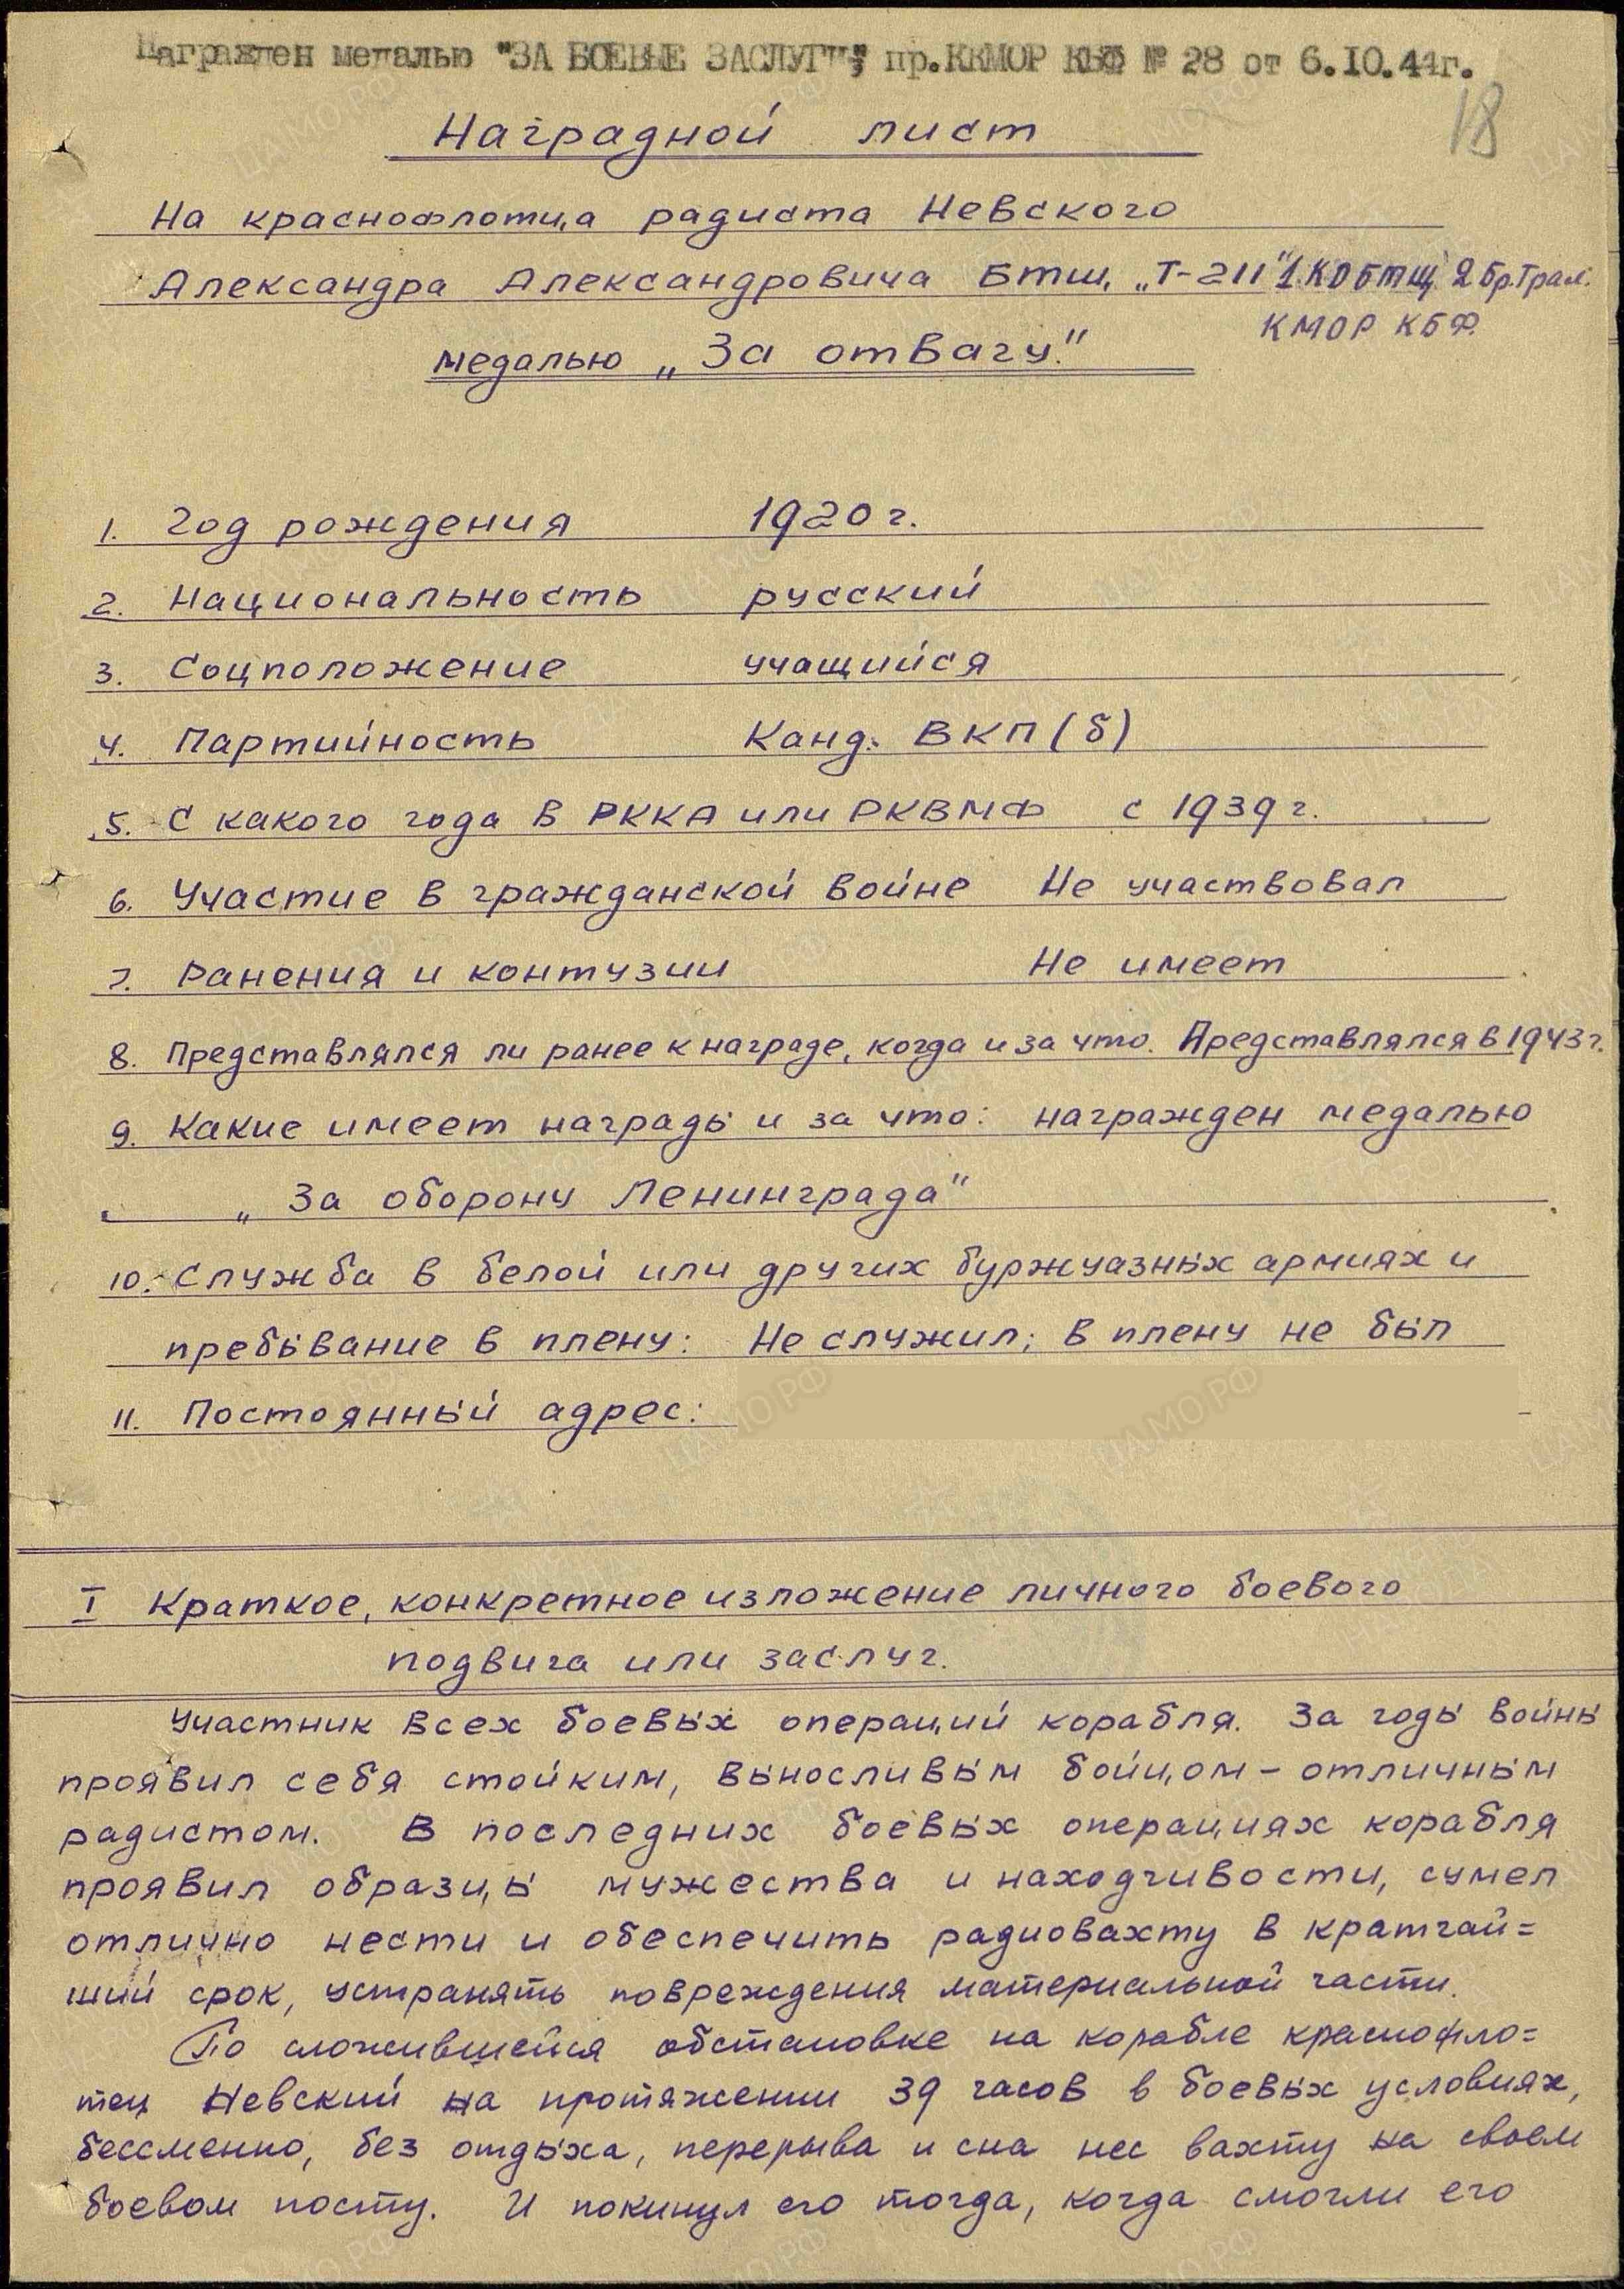 Награжден медалью "ЗА БОЕВЫЕ ЗАСЛУГИ", пр.ККМОР КБФ № 28 от 6.10.44г.
18
Наградной лист
На краснофлотца радиста Невского
Александра Александровича БТЩ, „Т-211" 1 КД БТЩ 2 Бр.Трал.
КМОР КБФ
медалью „За отвагу."
1. Год рождения 1920 г.
2. Национальность русский
3. Соцположение учащийся
4. Партийность Канд. ВКП(б)
5. С какого года в РККА или РКВМФ с 1939 г.
6. Участие в гражданской войне Не участвовал
7. Ранения и контузии Не имеет
8. Представлялся ли ранее к награде, когда и за что. Представлялся в 1943 г.
9. Какие имеет награды и за что: награжден медалью
„За оборону Ленинграда"
10. Служба в белой или других буржуазных армиях и
пребывание в плену: Не служил; в плену не был
11. Постоянный адрес:
I Краткое, конкретное изложение личного боевого
подвига или заслуг.
Участник всех боевых операций корабля. За годы войны
проявил себя стойким, выносливым бойцом - отличным
радистом. В последних боевых операциях корабля
проявил образцы мужества и находчивости, сумел
отлично нести и обеспечить радиовахту в кратчай=
ший срок, устранять повреждения материальной части.
По сложившейся обстановке на корабле краснофло=
тец Невский на протяжении 39 часов в боевых условиях,
бессменно, без отдыха, перерыва и сна нес вахту на своем
боевом посту. И покинул его тогда, когда смогли его